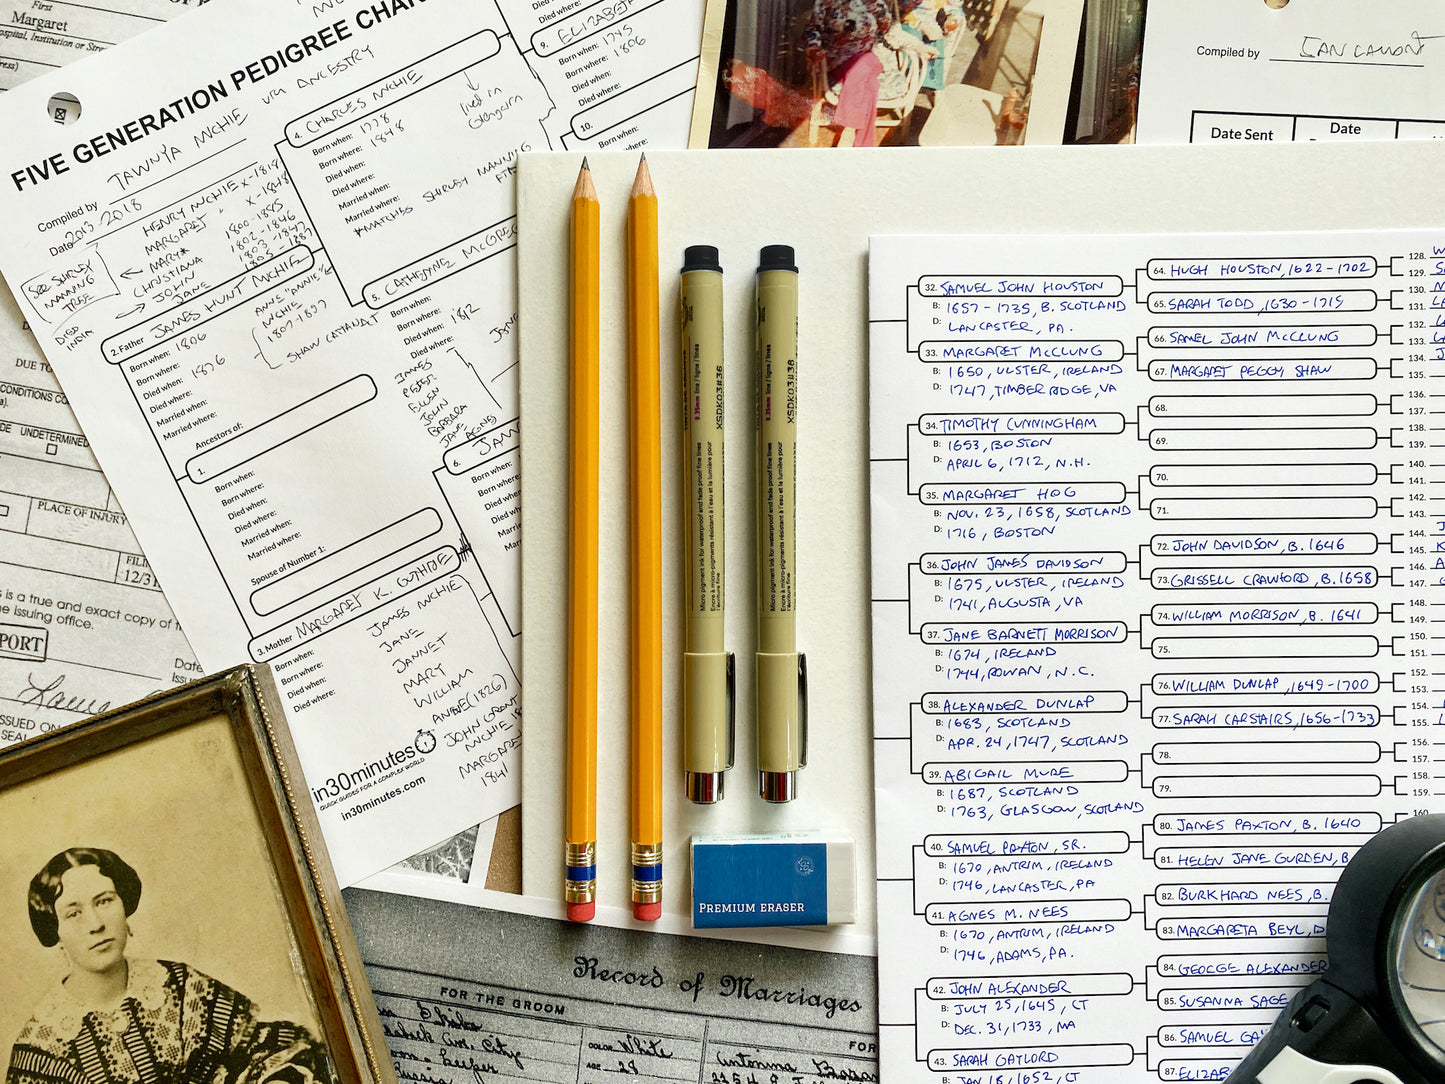 First
Margaret
FIVE GENERATION PEDIGREE CHAR
Compiled by TAWNYA MCHIE VIA ANCESTRY
Date 2013-2018
HENRY MCHIE X-1818
MARGARET " X-1848
MARY* 1800-1885
CHRISTIANA 1802-1846
JOHN 1803-1847
JANE 1803-1887
SEE SHIRLEY
MANNING
TREE
DIED
INDIA
2. Father JAMES HUNT MCHIE
Born when: 1806
Born where:
Died when: 1876
Died where:
Married when:
Married where:
ANNE "ANNIE"
MCHIE
1807-1897
SHAW CATANAT
Ancestors of:
1.
Born when:
Born where:
Died when:
Died where:
Married when:
Married where:
Spouse of Number 1:
3. Mother MARGARET K. GUTHRIE
Born when:
Born where:
Died when:
Died where:
JAMES MCHIE
JANE
JANNET
MARY
WILLIAM
ANNE (1826)
JOHN GRANT
MCHIE
MARGARE
1841
in30minutes
QUICK GUIDES FOR A COMPLEX WORLD
in30minutes.com
4. CHARLES MCHIE
Born when: 1778
Born where: 1848
Died when:
Died where:
Married when:
Married where:
lived in
Glasgow
*MATCHES SHIRLEY MANNING
5. CATHERINE MCGREG
Born when:
Born where: 1812
Died when:
Died where:
JAMES
PETER
ELLEN
JOHN
BARBARA
JANE
AGNES
6. JAM
Born when:
Born where:
Died
Died where:
Married when:
Married
9. ELIZABETH
Born when: 1745
Born where: 1806
Died when:
Died where:
10.
Born when:
Born where:
Died when:
Died where:
DUE TO
CONDITIONS CO
UNDETERMINED
PLACE OF INJURY
FILI
12/31
s is a true and exact copy of
e issuing office.
PORT
Date
Issu
ISSUED ON
SEAL
Compiled by IAN LAMONT
Date Sent
Date
0.35mm line / ligne / lines
XSDK03#36
Micro pigment ink for waterproof and fade proof fine lines
Encre à micro-pigments résistant à l'eau et la lumière pour
l'écriture fine
0.35mm line / ligne / lines
XSDK03#36
Micro pigment ink for waterproof and fade proof fine lines
Encre à micro-pigments résistant à l'eau et la lumière pour
l'écriture fine
PREMIUM ERASER
32. SAMUEL JOHN HOUSTON
B: 1657-1735, B. SCOTLAND
D: LANCASTER, PA.
33. MARGARET McCLUNG
B: 1650, ULSTER, IRELAND
D: 1747, TIMBER RIDGE, VA
34. TIMOTHY CUNNINGHAM
B: 1653, BOSTON
D: APRIL 6, 1712, N.H.
35. MARGARET HOG
B: NOV. 23, 1658, SCOTLAND
D: 1716, BOSTON
36. JOHN JAMES DAVIDSON
B: 1675, ULSTER, IRELAND
D: 1741, AUGUSTA, VA
37. JANE BARNETT MORRISON
B: 1674, IRELAND
D: 1744, ROWAN, N.C.
38. ALEXANDER DUNLAP
B: 1683, SCOTLAND
D: APR. 24, 1747, SCOTLAND
39. ABIGAIL MURE
B: 1687, SCOTLAND
D: 1763, GLASGOW, SCOTLAND
40. SAMUEL PAXTON, SR.
B: 1670, ANTRIM, IRELAND
D: 1746, LANCASTER, PA
41. AGNES M. NEES
B: 1670, ANTRIM, IRELAND
D: 1746, ADAMS, PA.
42. JOHN ALEXANDER
B: JULY 25, 1645, CT
D: DEC. 31, 1733, MA
43. SARAH GAYLORD
B: JAN 18, 1652, CT
64. HUGH HOUSTON, 1622-1702
65. SARAH TODD, 1630-1715
66. SAMEL JOHN McCLUNG
67. MARGARET PEGGY SHAW
68.
69.
70.
71.
72. JOHN DAVIDSON, B. 1646
73. GRISSELL CRAWFORD, B. 1658
74. WILLIAM MORRISON, B. 1641
75.
76. WILLIAM DUNLAP, 1649-1700
77. SARAH CARSTAIRS, 1656-1733
78.
79.
80. JAMES PAXTON, B. 1640
81. HELEN JANE GURDEN, B
82. BURKHARD NEES, B.
83. MARGARETA BEYL, D
84. GEORGE ALEXANDER
85. SUSANNA SAGE
86. SAMUEL GA
87. ELIZAB
128.
129.
130.
131.
132.
133.
134.
135.
136.
137.
138.
139.
140.
141.
142.
143.
144.
145.
146.
147.
148.
149.
150.
151.
152.
153.
154.
155.
156.
157.
158.
159.
160.
Record of Marriages
FOR THE GROOM
FOR
COLOR White
AGE 28
City
Russia